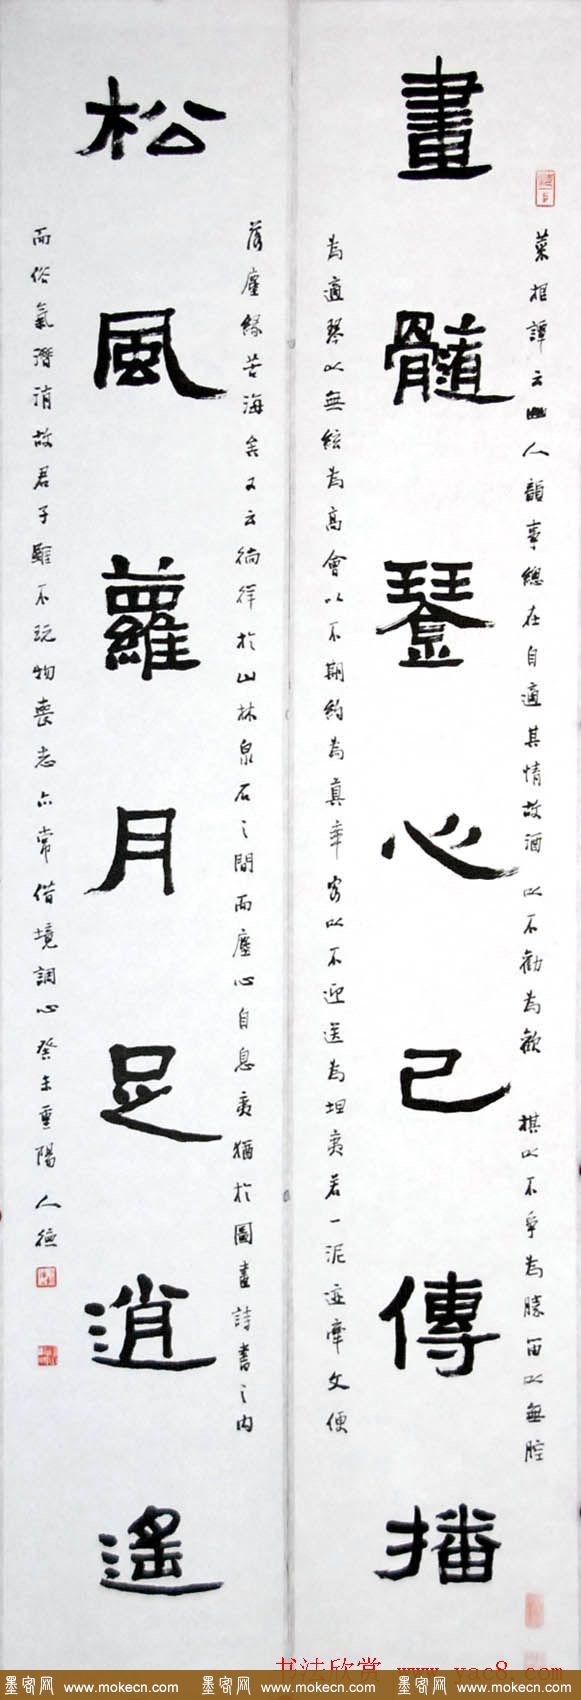 畫髓琴心已傳播
松風蘿月足逍遙
菜根譚云幽人韻事總在自適其情故酒以不勸為歡 棋以不爭為勝笛以無腔
為適琴以無絃為高會以不期約為真率客以不迎送為坦夷若一泥迹牽文便
落塵緣苦海矣又云徜徉於山林泉石之間而塵心自息夷猶於圖畫詩書之內
而俗氣潛消故君子雖不玩物喪志亦常借境調心癸未重陽 人德
书法欣赏 www.yac8.com
墨客网 www.mokecn.com 墨客网 www.mokecn.com 墨客网 www.mokecn.com